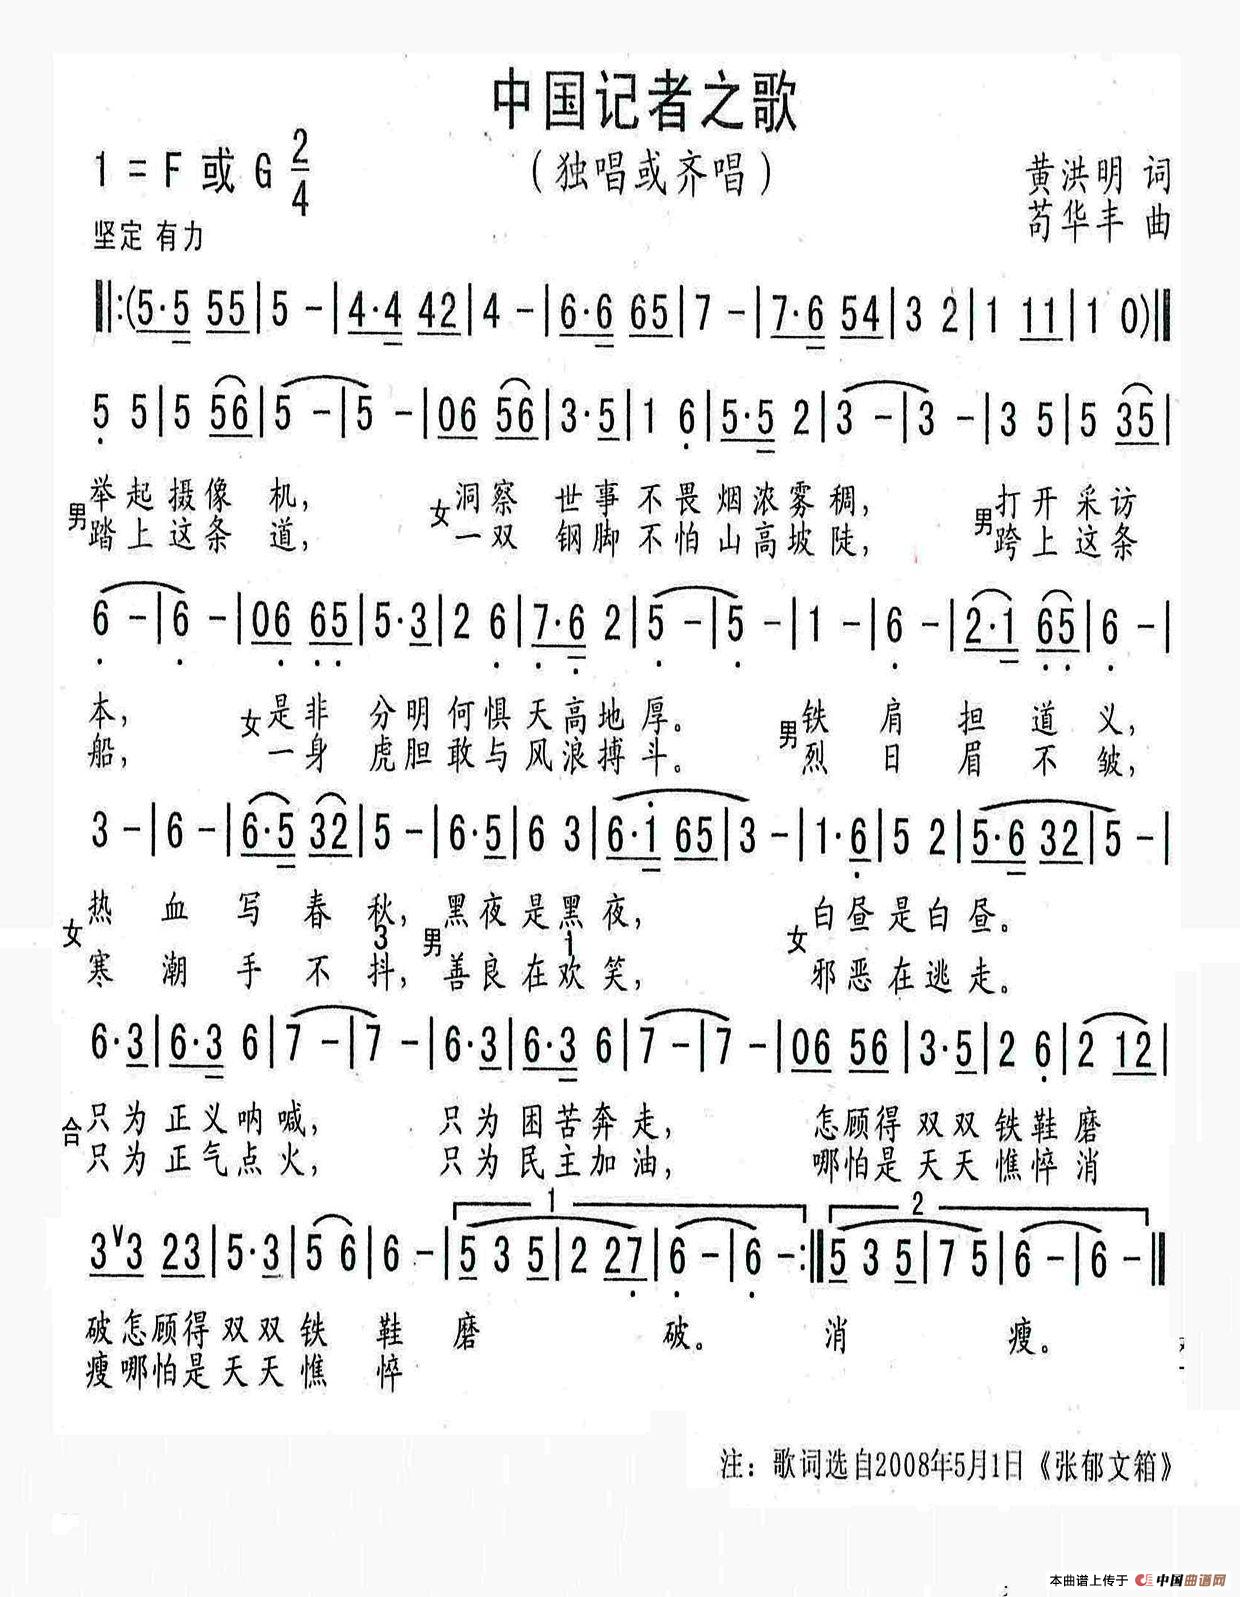 中国记者之歌
1 = F 或 G 2/4
（独唱或齐唱）
黄洪明 词
苟华丰 曲
坚定 有力
‖:(5·5 55|5 -|4·4 42|4 -|6·6 65|7 -|7·6 54|3 2|1 11|1 0)‖
5 5|5 56|5 -|5 -|06 56|3·5|1 6|5·5 2|3 -|3 -|3 5|5 35|
男 举起摄像 机， 女 洞察 世事不畏烟浓雾稠， 男 打开采访
踏上这条 道， 一双 钢脚不怕山高坡陡， 跨上这条
6 -|6 -|06 65|5·3|2 6|7·6 2|5 -|5 -|1 -|6 -|2·1 65|6 -|
本， 女 是非 分明何惧天高地厚。 男 铁 肩 担 道 义，
船， 一身 虎胆敢与风浪搏斗。 烈 日 眉 不 皱，
3 -|6 -|6·5 32|5 -|6·5|6 3|6·1 65|3 -|1·6|5 2|5·6 32|5 -|
热 血 写 春 秋， 黑夜是黑 夜， 白昼是白 昼。
女 3 男 1 女
寒 潮 手 不 抖， 善良在欢 笑， 邪恶在逃 走。
6·3|6·3 6|7 -|7 -|6·3|6·3 6|7 -|7 -|06 56|3·5|2 6|2 12|
合 只为 正义呐喊， 只为 困苦奔 走， 怎顾得 双双铁鞋 磨
只为 正气点火， 只为 民主加油， 哪怕是 天天憔悴 消
1 2
3∨3 23|5·3|5 6|6 -|5 3 5|2 27|6 -|6 -:‖5 3 5|7 5|6 -|6 -‖
破怎顾得 双双铁 鞋 磨 破。 消 瘦。
瘦哪怕是 天天憔 悴
注：歌词选自2008年5月1日《张郁文箱》
本曲谱上传于 中国曲谱网